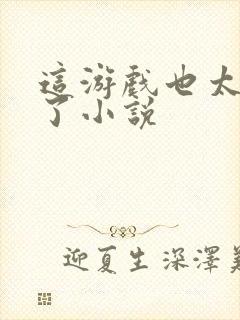 這游戲也太
了小說
迎夏生深澤美